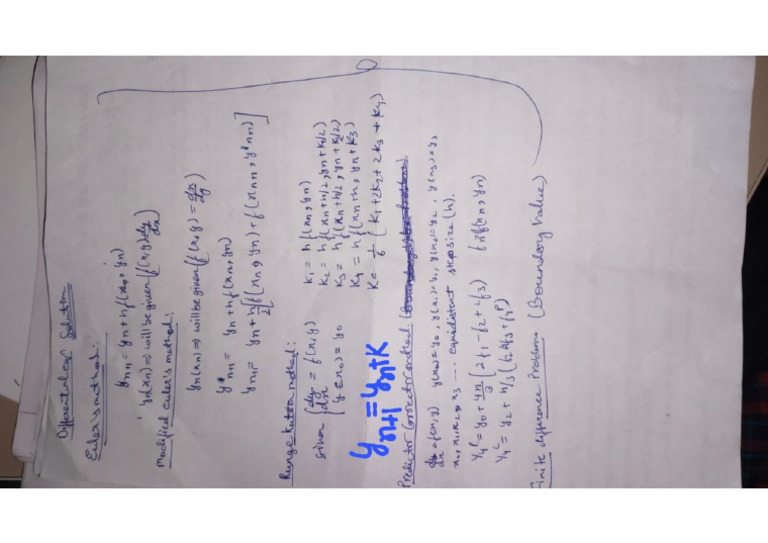 Differential eqn Solution
Euler's method:
yn+1 = yn + hf(xn, yn)
yn(xn) => will be given (f(x,y) = dy/dx)
modified euler's method:
yn(xn) => will be given (f(x,y) = dy/dx)
y*n+1 = yn + hf(xn, yn)
yn+1 = yn + h/2 [f(xn, yn) + f(xn+1, y*n+1)]
Runge kutta method:
given { dy/dx = f(x,y)
{ y(x0) = y0
K1 = hf(xn, yn)
K2 = hf(xn + h/2, yn + K1/2)
K3 = hf(xn + h/2, yn + K2/2)
K4 = hf(xn + h, yn + K3)
K = 1/6 (K1 + 2K2 + 2K3 + K4)
yn+1 = yn + K
Predictor Corrector method:
dy/dx = f(x,y) y(x0) = y0, y(x1) = y1, y(x2) = y2, y(x3) = y3
x0, x1, x2, x3 .... equidistant step size (h).
Y4P = y0 + 4h/3 [2f1 - f2 + 2f3] fn = f(xn, yn)
Y4C = y2 + h/3 (f2 + 4f3 + f4P)
Finite difference Problem (Boundary Value)